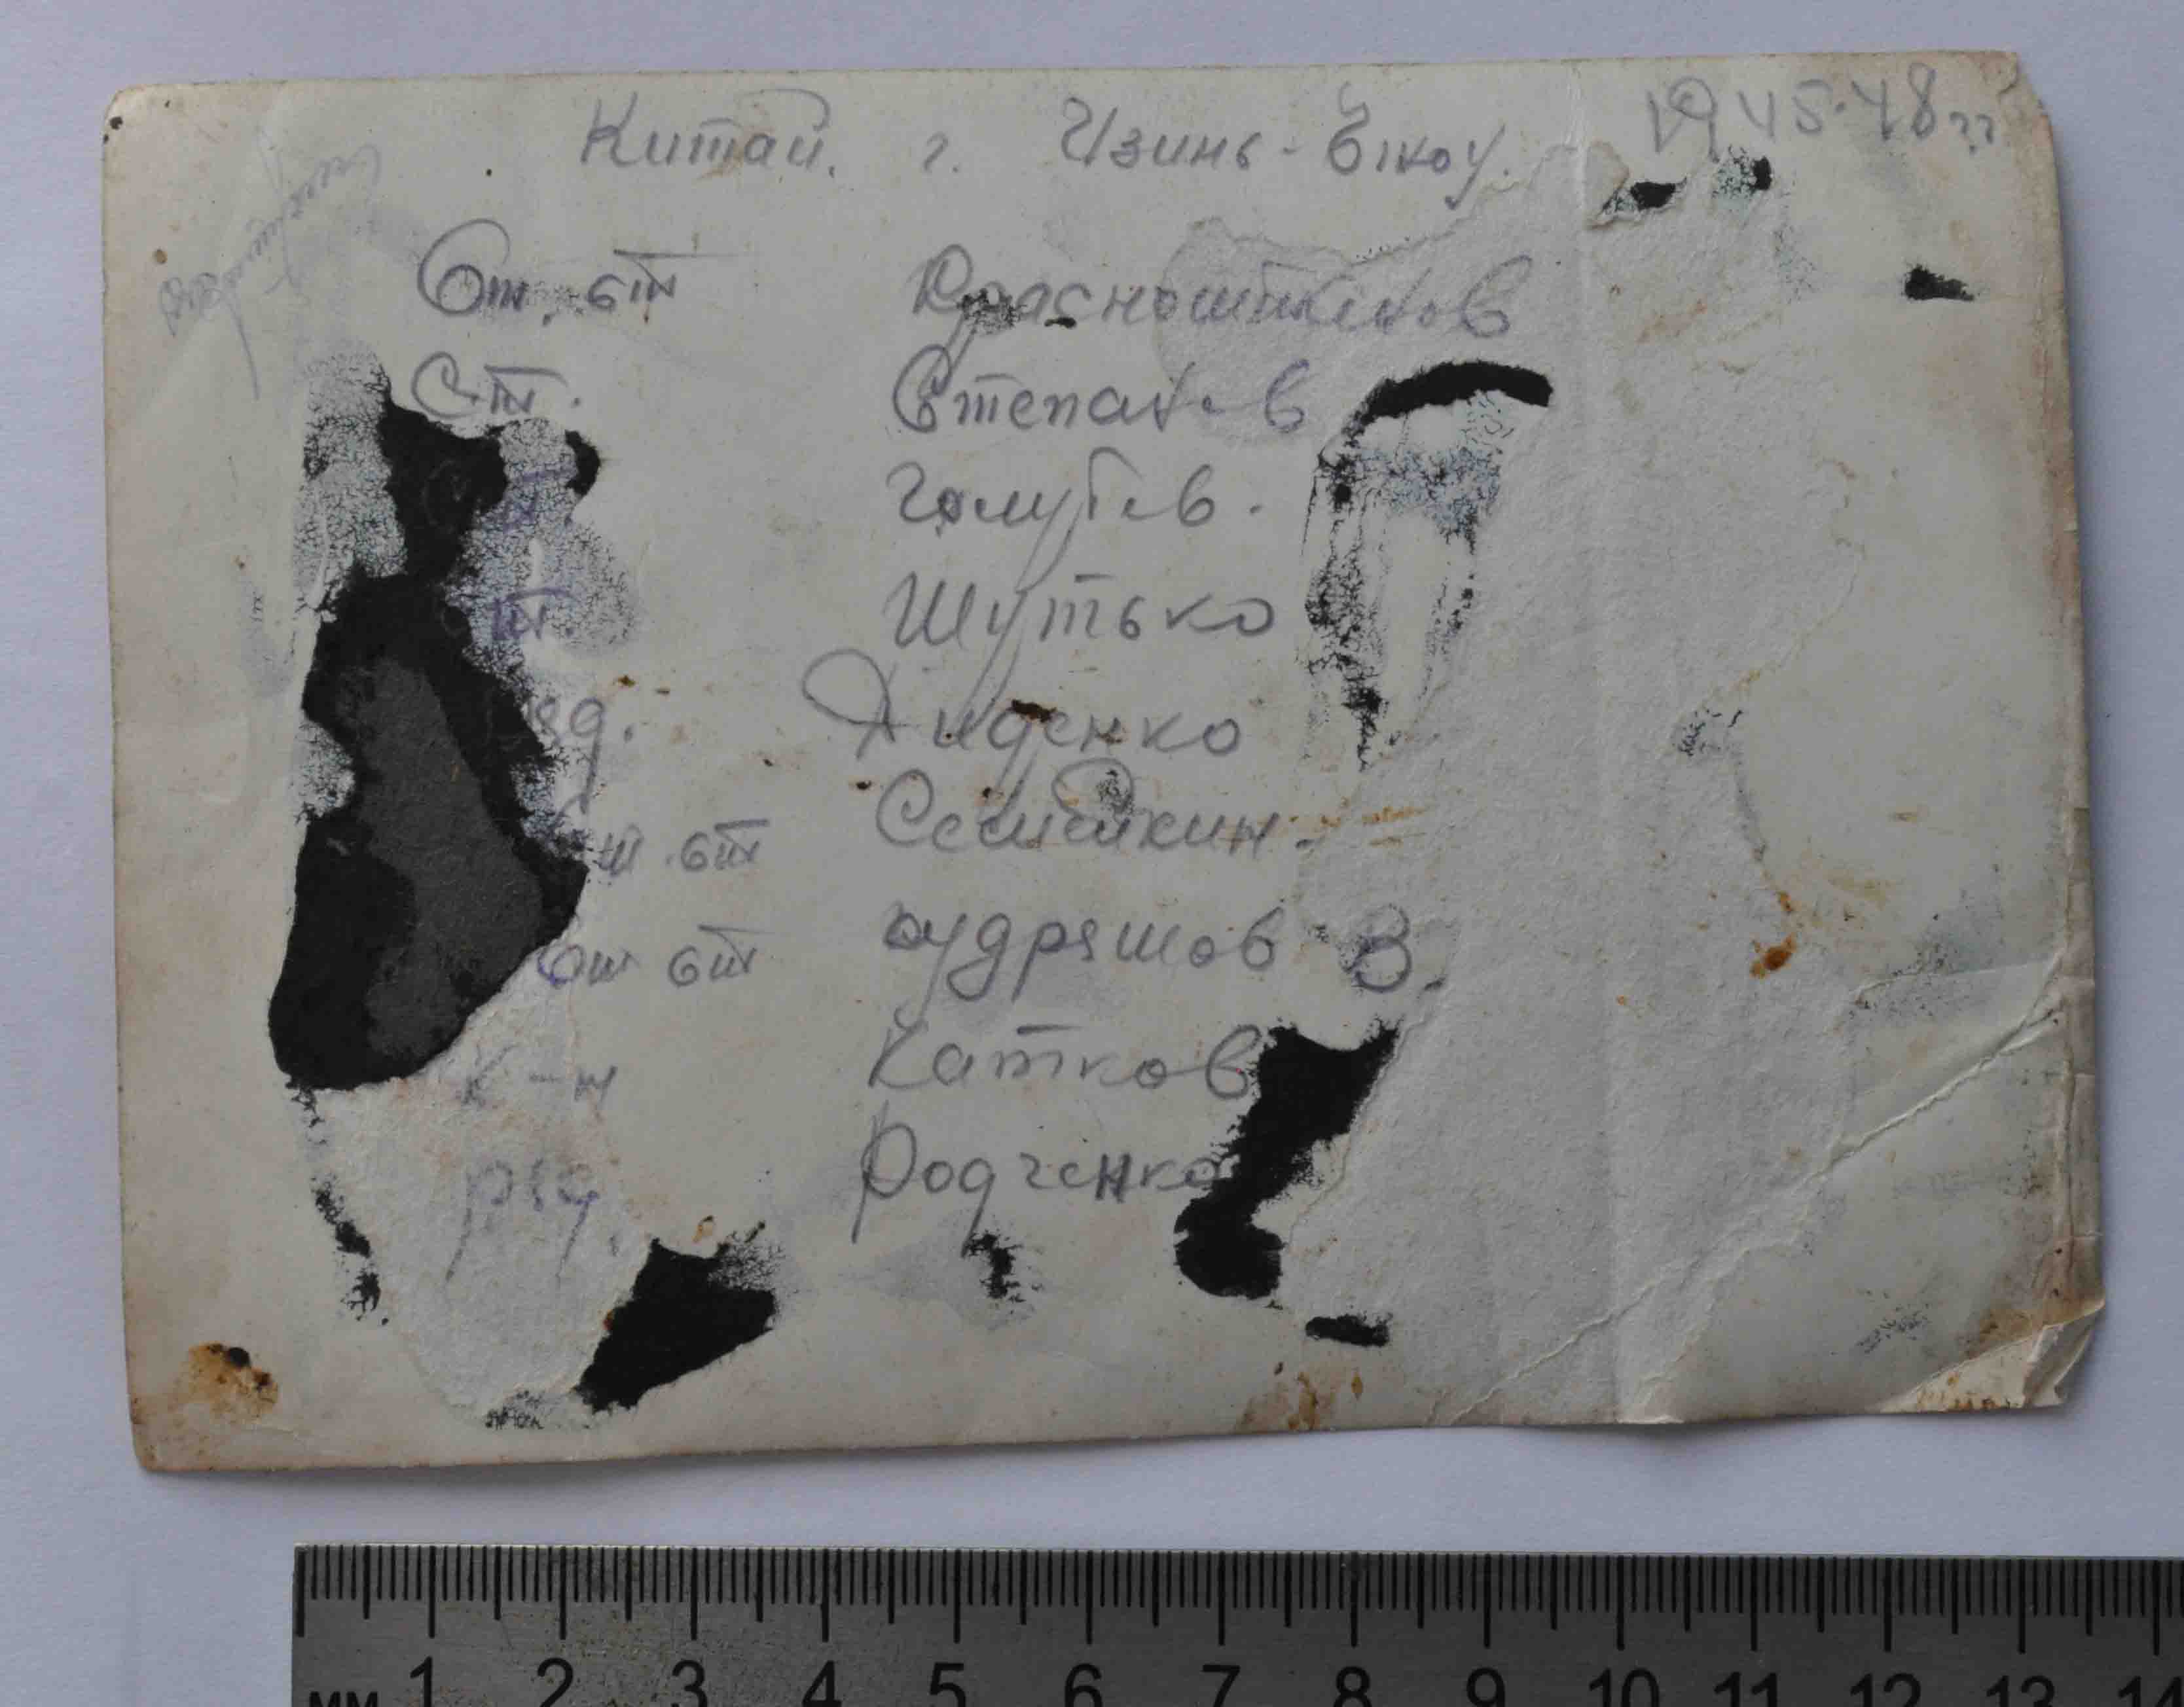 Китай. г. Изинь-Ёкоу. 1945-48гг
Ст. ст Красноштанов
Ст. Степанов
Голубев.
Шутько
яд. Диденко
ст Семыкин.
Ст ст Кудряшов В.
К-н Катков
ряд. Родченко
мм 1 2 3 4 5 6 7 8 9 10 11 12 13 14